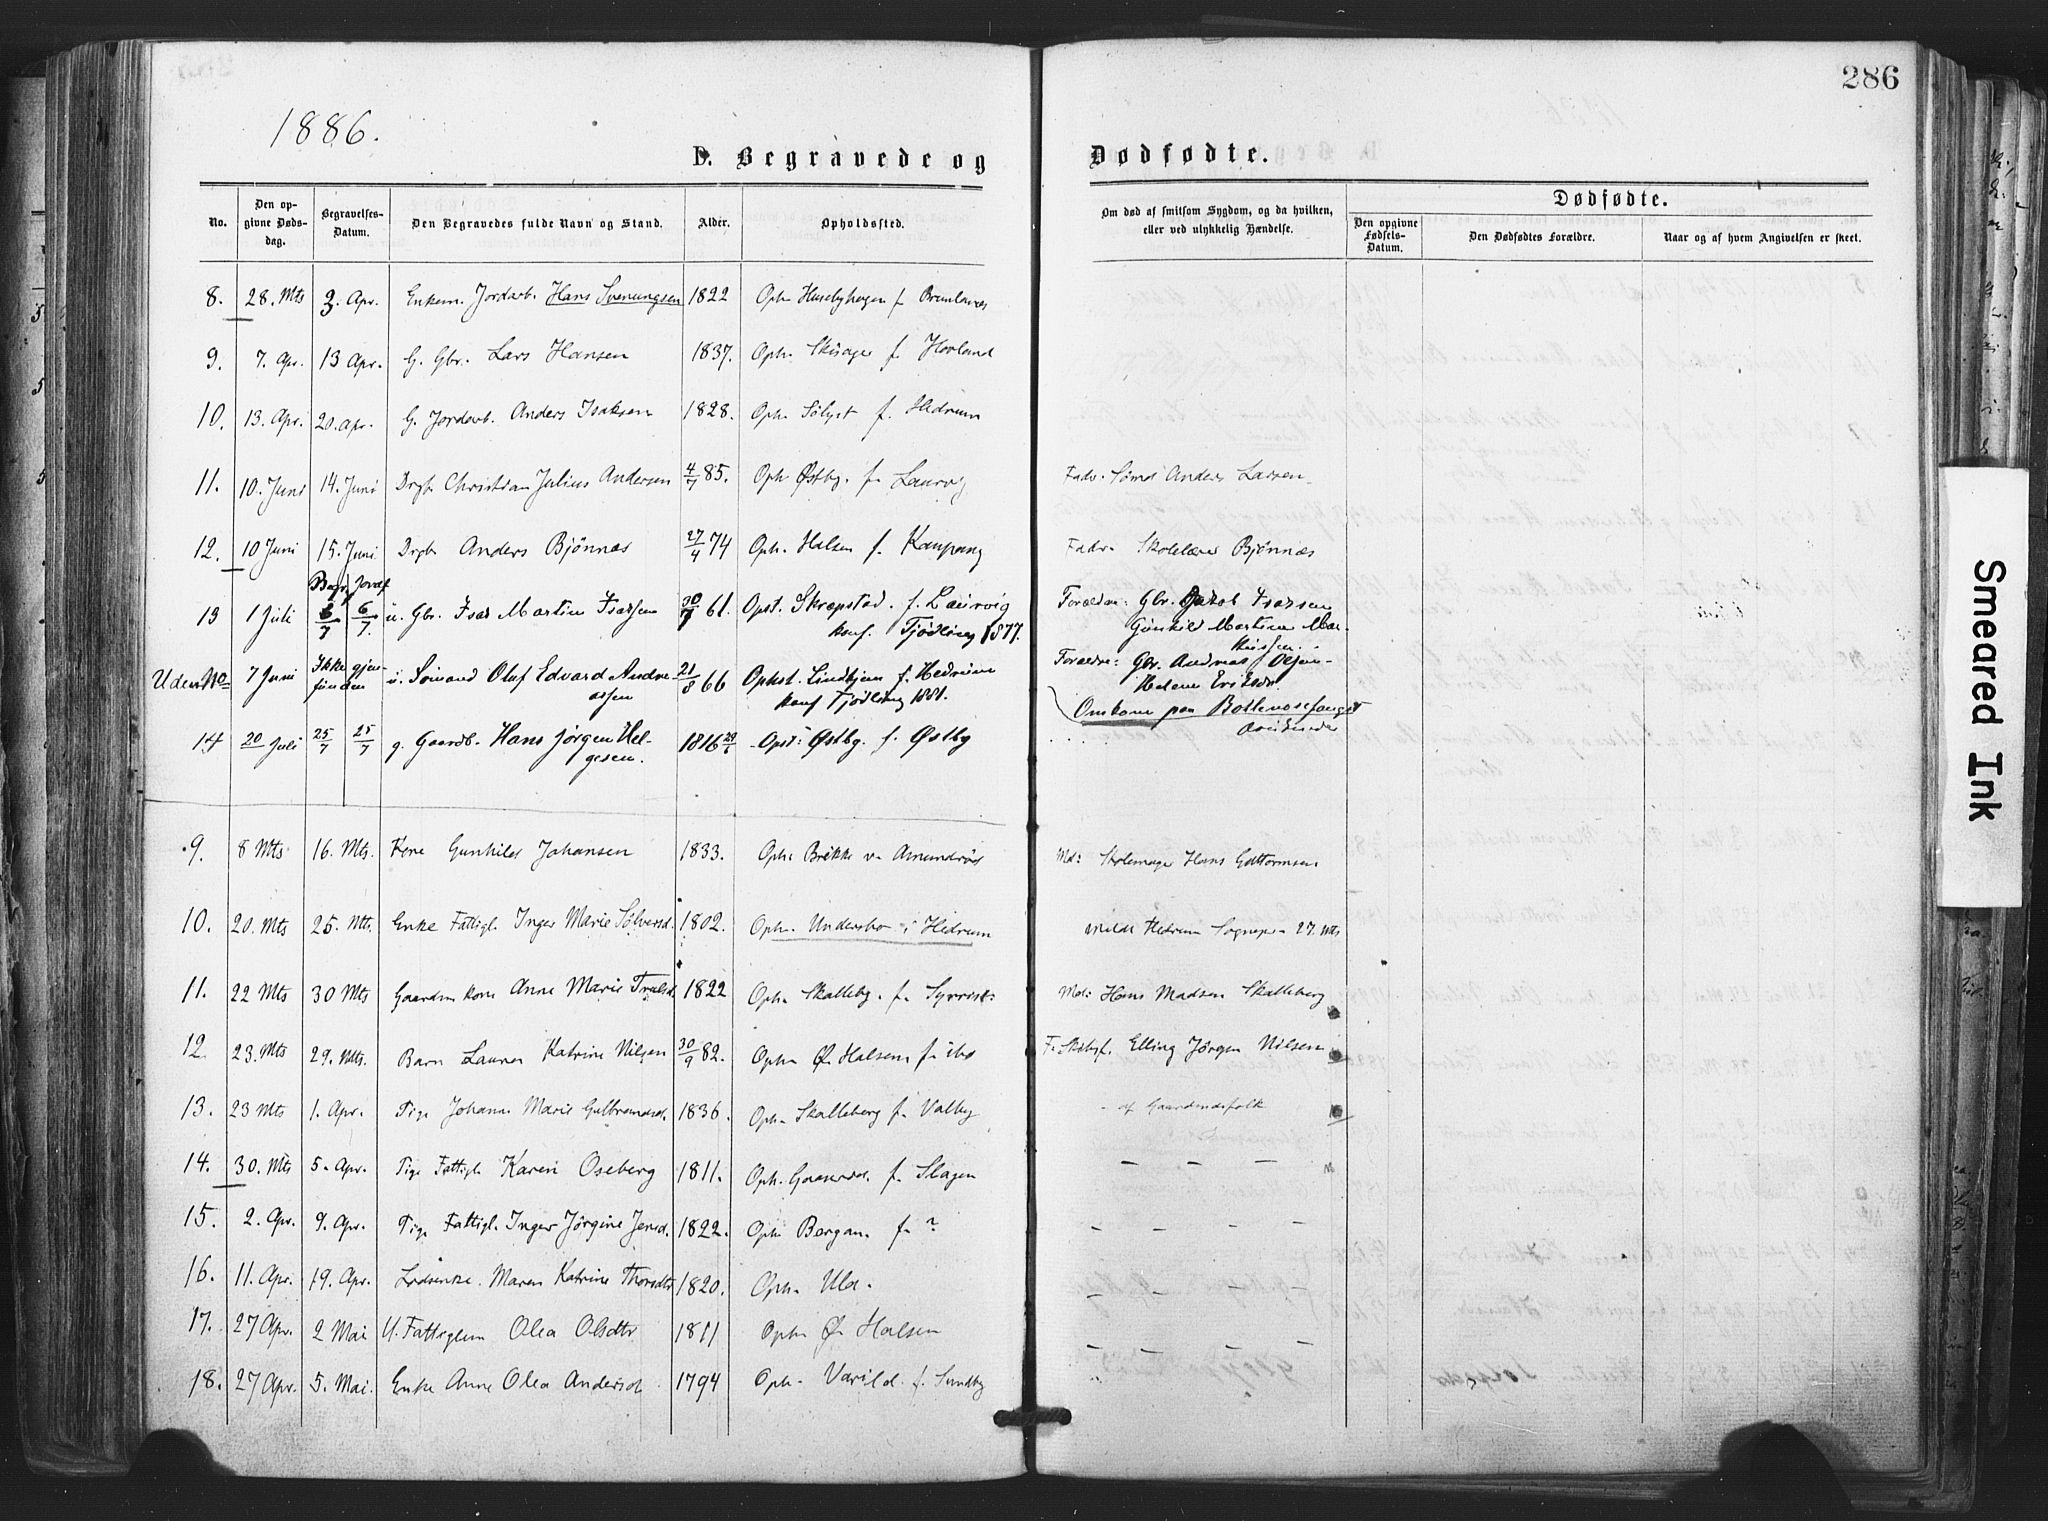 286
1886.
D. Begravede og Dødfødte.
No.
Den opgivne Dødsdag.
Begravelses-Datum.
Den Begravedes fulde Navn og Stand.
Alder.
Opholdssted.
Om død af smitsom Sygdom, og da hvilken, eller ved ulykkelig Hændelse.
Dødfødte.
Den opgivne Fødsels-Datum.
Den Dødfødtes Forældre.
Naar og af hvem Angivelsen er skeet.
8. 28. Mts 3. Apr. Enkem. Jordarb. Hans Svenungsen 1822 Oph. Husebyhagen f. Brunlanæs
9. 7. Apr. 13 Apr. G. Gbr. Lars Hansen 1837. Oph. Skisager f. Hovland
10. 13. Apr. 20. Apr. G. Jordarb. Anders Isaksen 1828. Oph. Sølyst f. Hedrum
11. 10. Juni 14. Juni Drgb. Christian Julius Andersen 4/7 85. Oph. Østby. f. Laurvig Fadr. Sømd Anders Larsen
12. 10 Juni 15. Juni Drgb. Anders Bjønnæs 27/4 74 Oph. Halsen f. Kaupang Fadr. Skolelærer Bjønnæs
Begr. Jordf
13 1 Juli 6/7 6/7. u. Gbr. Isak Martin Isaksen 30/7 61. Opst. Skræpstad. f. Laurvig Forældre: Gbr. Jakob Isaksen
konf. Tjødling 1877. Gunhild Martine Markussen.
Uden No 7 Juni Ikke gjenfunden u. Sømand Oluf Edvard Andreassen 21/8 66 Ophst. Lindhjem f. Hedrum Forældre: Gbr. Andreas Olsen
konf Tjødling 1881. Helene Eriksdr.
Omkom paa Bottlenosefangst
14 20 Juli 25/7 25/7 g. Gaardb. Hans Jørgen Helgesen. 1816 Opst: Østby. f. Østby
9. 8 Mts 16. Mts. Kone Gunhild Johansen 1833. Oph. Brekke v. Amundrød Md: Skomager Hans Guttormsen
10. 20. Mts 25. Mts. Enke Fattigl. Inger Marie Sølversd. 1802. Oph. Undersbo i Hedrum Meldt Hedrum Sognepr. 27. Mts
11. 22 Mts 30 Mts Gaardm. kone Anne Marie Trulsd. 1822 Oph. Skalleby. f. Syvrist: Md: Hans Madsen Skalleberg
12. 23. Mts 29. Mts. Barn Laura Katrine Nilsen 30/9 82. Oph. Ø. Halsen f. ibd F. Elling Jørgen Nilsen
13. 23 Mts 1. Apr. Pige Johanne Marie Gulbrandsd. 1836. Oph. Skalleberg f. Valby - af Gaardmdsfolk
14. 30. Mts 5. Apr. Pige Fattigl. Karen Oseberg 1811. Oph. f. Slagen — — —
15. 2. Apr. 9. Apr. Pige Fattigl. Inger Jørgine Jensd. 1822. Oph. Bergan f. ? — — —
16. 11. Apr. 19. Apr. Lodsenke. Maren Katrine Thorsdtr 1820. Oph. Ula. — — — —
17. 27 Apr. 2 Mai U. Fattiglem Olea Olsdtr 1811 Oph. Ø. Halsen — — — —
18. 27 Apr. 5. Mai. Enke Anne Olea Andersd. 1794 Oph. Varild. f. Sundby
Smeared Ink